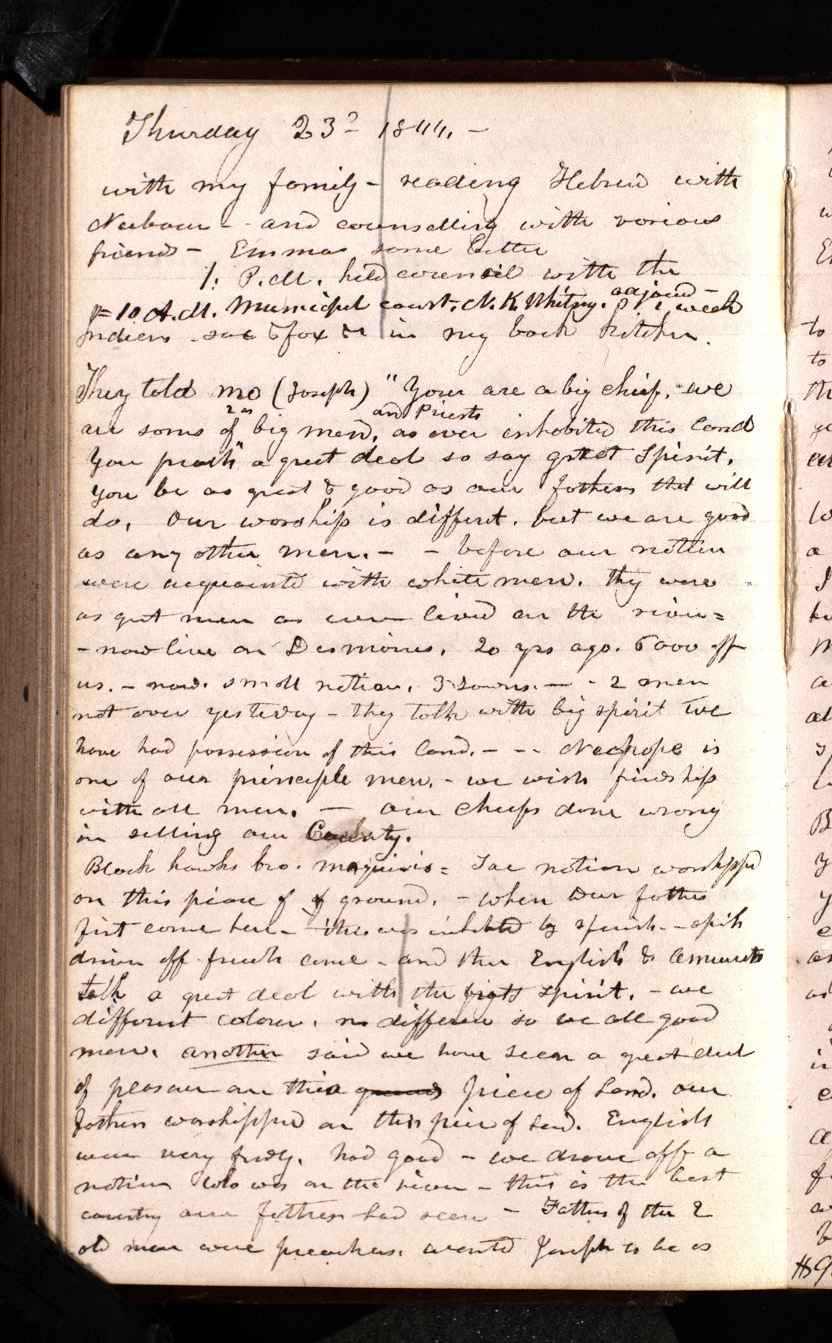 Thursday 23d 1844. —
with my family — reading Hebrew with
Neibaur — and counselling with various
friends — Emma some better
1. P.M. held council with the
10 A.M. Municipal court. N. K. Whitney. adjourned 1 week
Indians — sac & fox &c in my back kitchen.
They told me (Joseph) "You are a big chief, we
are sons of 2 as big men, and Priests as ever inhabited this land
You preach a great deal so say great Spirit.
you be as great & good as our fathers that will
do. Our worship is different. but we are good
as any other men. — — before our nation
were acquainted with white men. they were
as great men as ever lived on the river =
— now live on Desmoines. 20 yrs ago. 6000 of
us. — now. small nation. 3 towns. — - 2 men
not over yesterday — they talk with big spirit we
have had possession of this land. — - - Neopope is
one of our principle men. — we wish friendship
with all men. — our cheifs done wrong
in selling our Country.
Black hawks bro. = Sac nation worshipped
on this piece of ground. — when our fathers
first come here — this was inhabited by spanish. — spanish
driven off french came — and then English & Americans
talk a great deal with the great spirit. — we
different colour. no difference so we all good
men. another said we have seen a great deal
of pleasure on this piece of Land. our
fathers worshipped on this piece of land. English
were very frndly. had good — we drove off a
nation who was on the river — this is the best
country our fathers had seen — Fathers of the 2
old men were preachers. wanted Joseph to be as